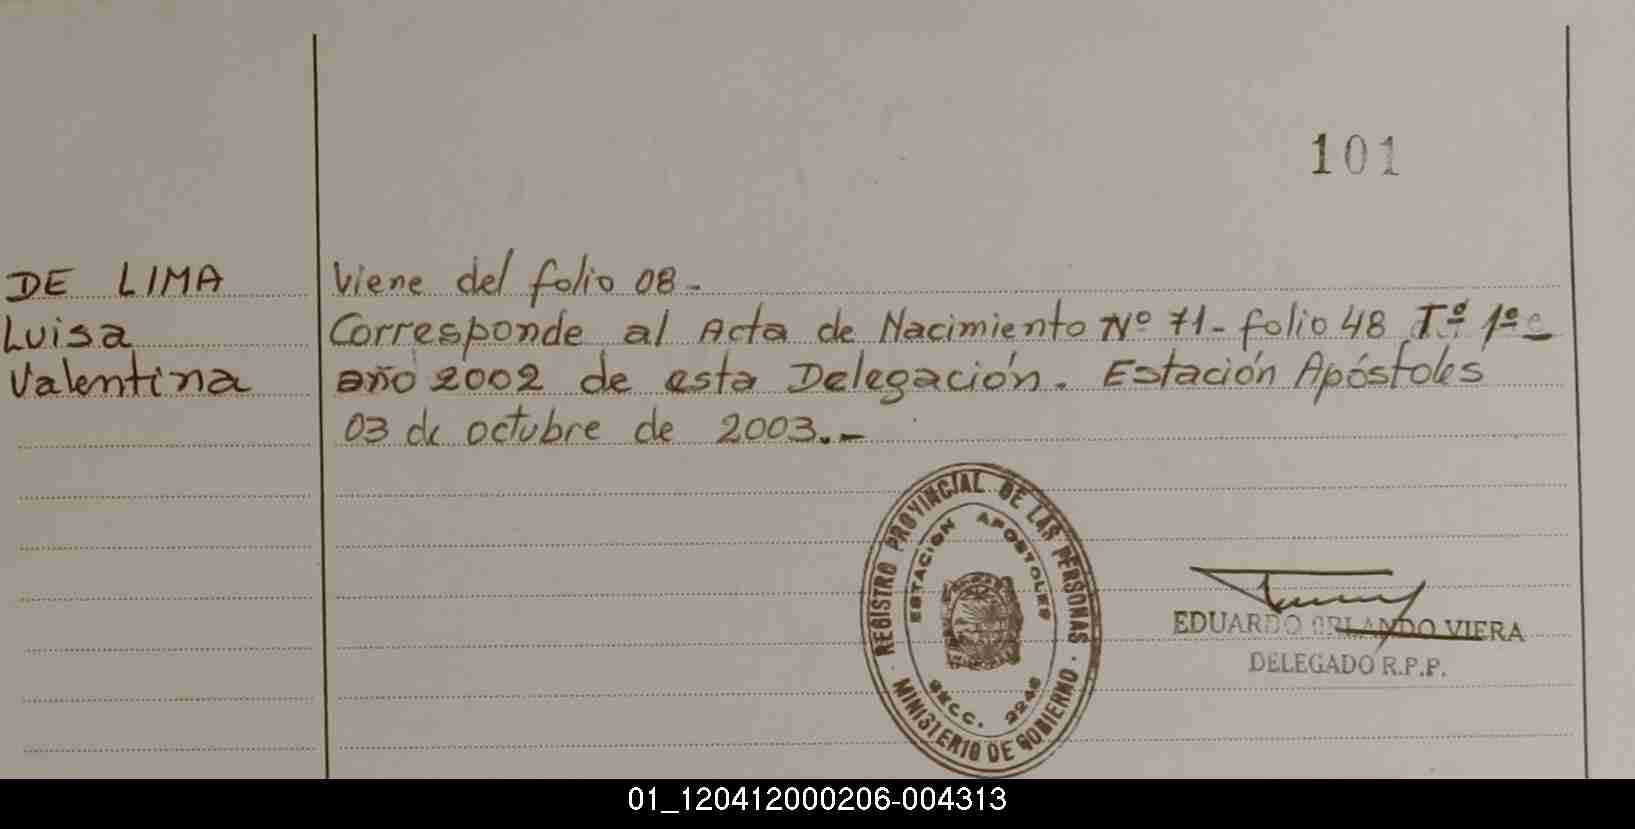 101
DE LIMA
Luisa
Valentina
Viene del folio 08.-
Corresponde al Acta de Nacimiento Nº 71- folio 48 Tº 1º
año 2002 de esta Delegación. Estación Apóstoles
03 de octubre de 2003.-
REGISTRO PROVINCIAL DE LAS PERSONAS
ESTACION APOSTOLES
SECC. 2246
MINISTERIO DE GOBIERNO
EDUARDO ORLANDO VIERA
DELEGADO R.P.P.
01_120412000206-004313